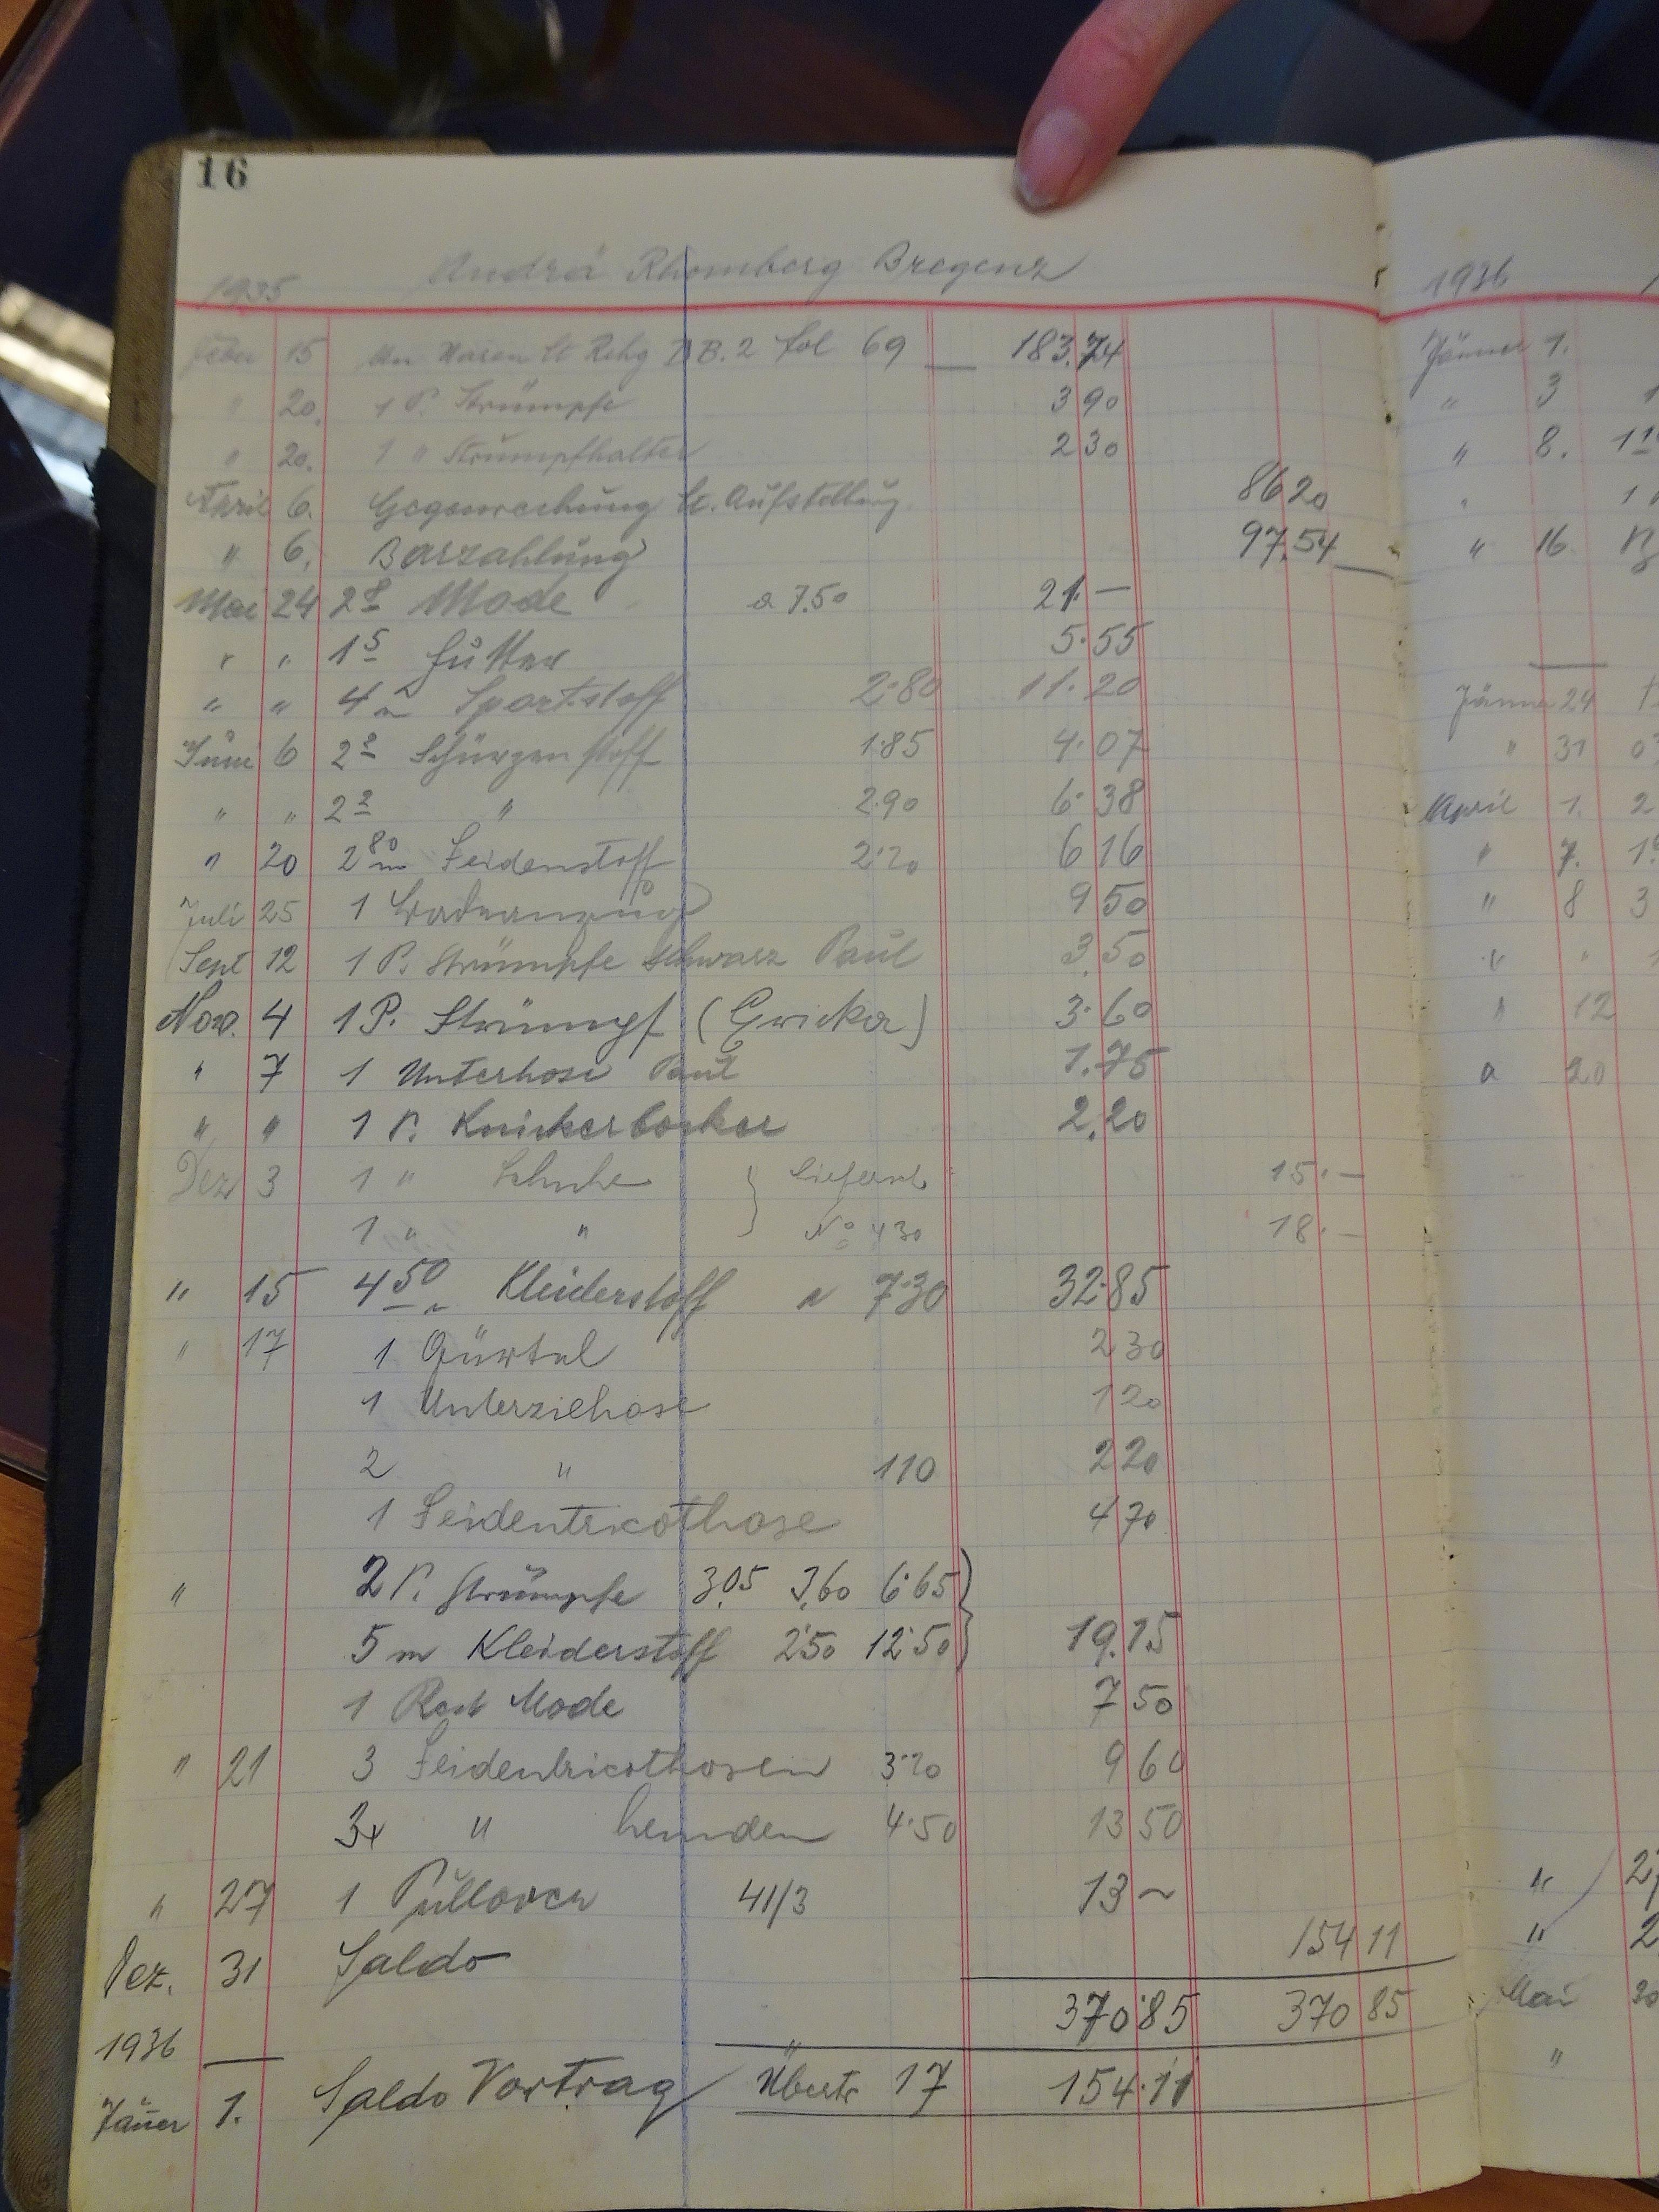 16
1935 Andrä Rhomberg Bregenz
Feber 15 An Waren lt Rchg B.2 fol 69 183.74
" 20. 1 P. Strümpfe 3 90
" 20. 1 " Strumpfhalter 2 30
April 6. Gegenrechnung lt. Aufstellung 86 20
" 6. Barzahlung 97.54
Mai 24 2 8 Mode a 7.50 21.—
" " 1 5 Futter 5.55
" " 4 m Sportstoff 2.80 11.20
Juni 6 2 2 Schürzenstoff 1.85 4.07
" " 2 2 " 2.90 6.38
" 20 2 80 m Seidenstoff 2.20 6 16
Juli 25 1 9 50
Sept 12 1 P. Strümpfe schwarz Paul 3.50
Nov. 4 1 P. Strümpf 3.60
" 7 1 Unterhose Paul 1.75
" " 1 P. Knickerbocker 2.20
Dez 3 1 " Schuhe } Liefert 15.—
1 " " } No 430 18.—
" 15 4 50 m Kleiderstoff a 7.30 32.85
" 17 1 Gürtel 2 30
1 Unterziehose 1 20
2 " 110 2 20
1 Seidentricothose 4 70
" 2 P. Strümpfe 3.05 3.60 6.65 }
5 m Kleiderstoff 2.50 12.50 } 19.15
1 Rest Mode 7 50
" 21 3 Seidentricothosen 3.20 9 60
3x " hemden 4.50 13 50
" 27 1 Pullover 41/3 13 ~
Dez. 31 Saldo 154 11
370.85 370 85
1936
Jäner 1. Saldo Vortrag Übertr 17 154.11
1936
Jänner 1.
" 3
" 8.
" 16.
Jänner 24
" 31
April 1. 2
" 7.
" 8 3
" 12
" 20
Mai 30